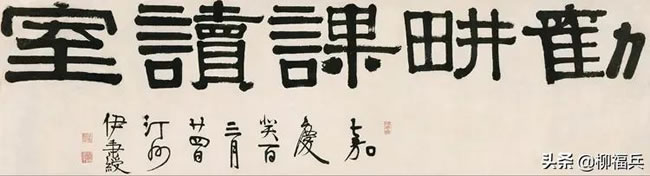 勸畊課讀室
嘉
慶
癸酉
三月
廿四日
汀州
伊秉綬
头条 @柳福兵